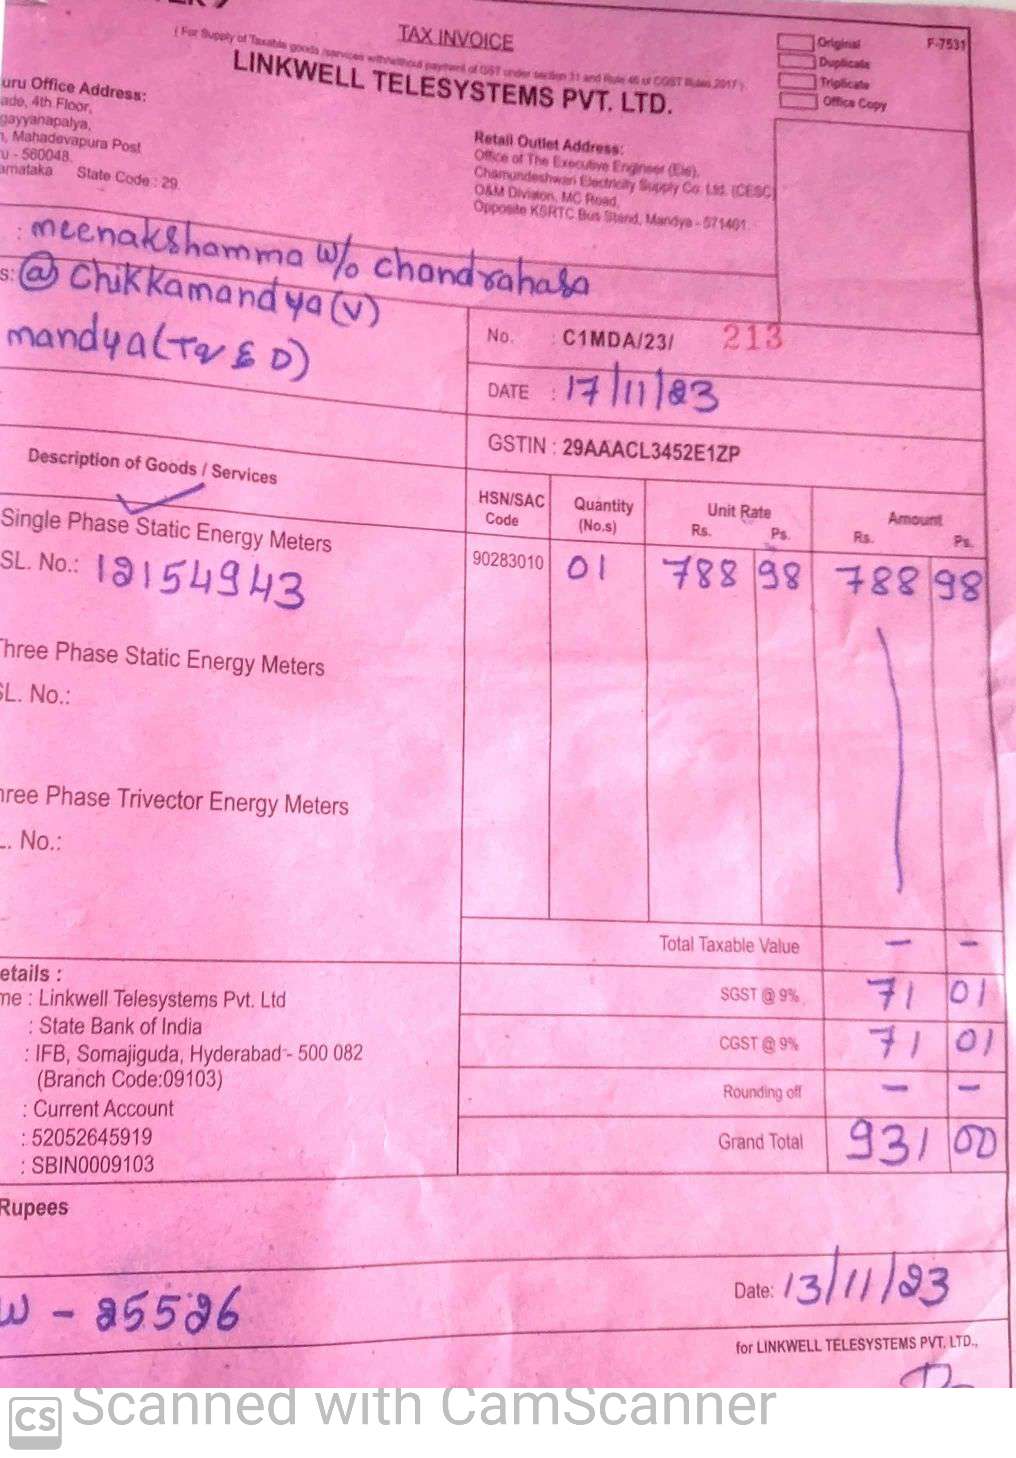 TAX INVOICE
( For Supply of Taxable goods /services with/without payment of GST under section 31 and Rule 46 of CGST Rules 2017 )
LINKWELL TELESYSTEMS PVT. LTD.
Original
Duplicate
Triplicate
Office Copy
F-7531
uru Office Address:
ade, 4th Floor,
gayyanapalya,
, Mahadevapura Post
u - 560048,
arnataka State Code : 29.
Retail Outlet Address:
Office of The Executive Engineer (Ele),
Chamundeshwari Electricity Supply Co. Ltd. (CESC)
O&M Division, MC Road,
Opposite KSRTC Bus Stand, Mandya - 571401.
: meenakshamma w/o chandrahasa
s: @ Chikkamandya (V)
mandya (Tq & D)
No. : C1MDA/23/ 213
DATE : 17/11/23
GSTIN : 29AAACL3452E1ZP
Description of Goods / Services
HSN/SAC Code
Quantity (No.s)
Unit Rate
Rs. Ps.
Amount
Rs. Ps.
Single Phase Static Energy Meters
SL. No.: 12154943
90283010 01 788 98 788 98
Three Phase Static Energy Meters
SL. No.:
hree Phase Trivector Energy Meters
L. No.:
Total Taxable Value - -
SGST @ 9% 71 01
CGST @ 9% 71 01
Rounding off - -
Grand Total 931 00
etails :
me : Linkwell Telesystems Pvt. Ltd
: State Bank of India
: IFB, Somajiguda, Hyderabad - 500 082
(Branch Code:09103)
: Current Account
: 52052645919
: SBIN0009103
Rupees
W - 25526
Date: 13/11/23
for LINKWELL TELESYSTEMS PVT. LTD.,
CS Scanned with CamScanner